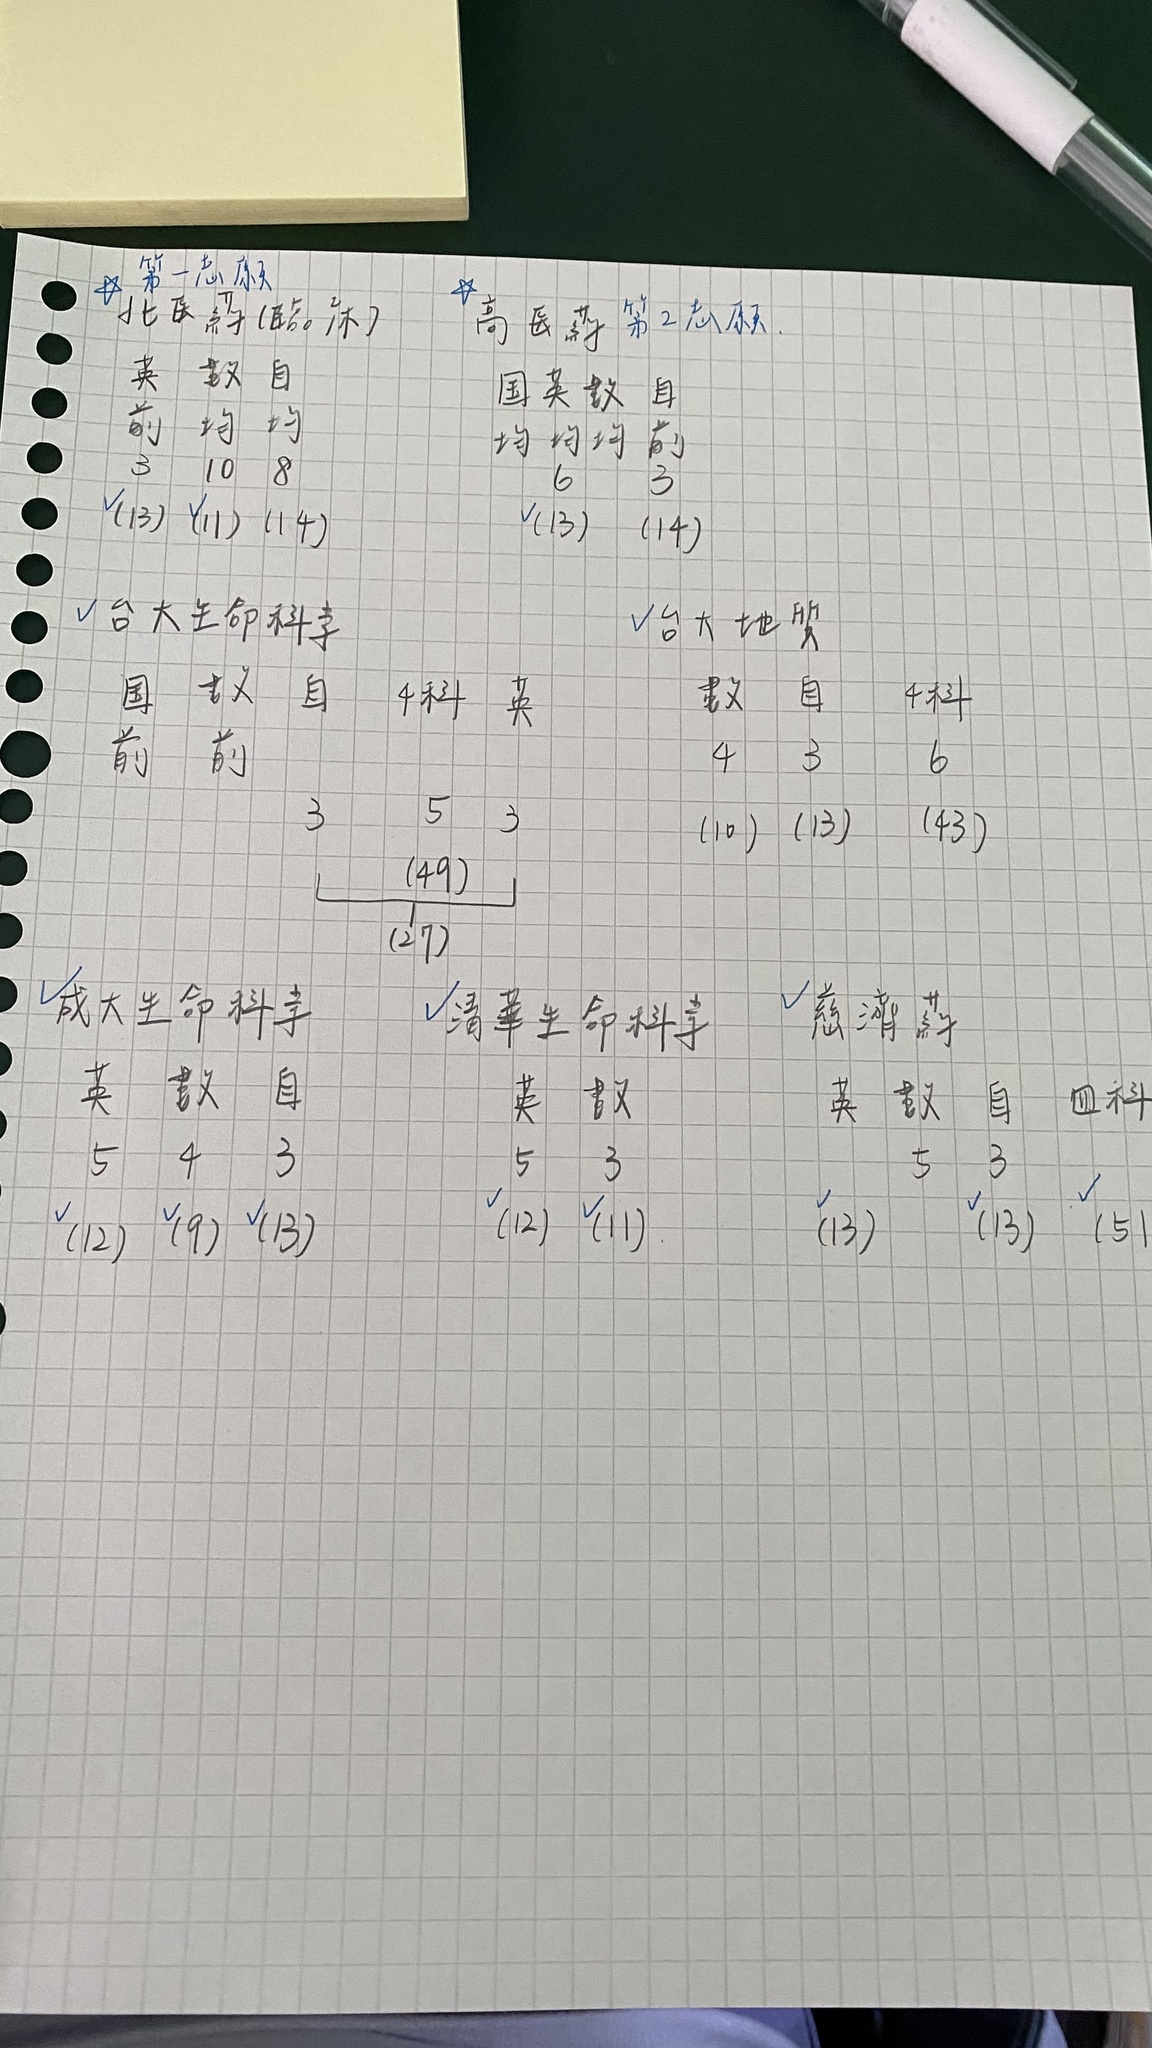 ☆ 第一志願
北医药(臨床)
英 数 自
前 均 均
3 10 8
✓(13) ✓(11) (14)
☆
高医药 第2志願.
国 英 数 自
均 均 均 前
6 3
✓(13) (14)
✓台大生命科学
国 数 自 4科 英
前 前
3 5 3
(49)
(27)
✓台大地質
数 自 4科
4 3 6
(10) (13) (43)
✓成大生命科学
英 数 自
5 4 3
✓(12) ✓(9) ✓(13)
✓清華生命科学
英 数
5 3
✓(12) ✓(11)
✓慈濟药
英 数 自 四科
5 3
✓(13) ✓(13) ✓(51